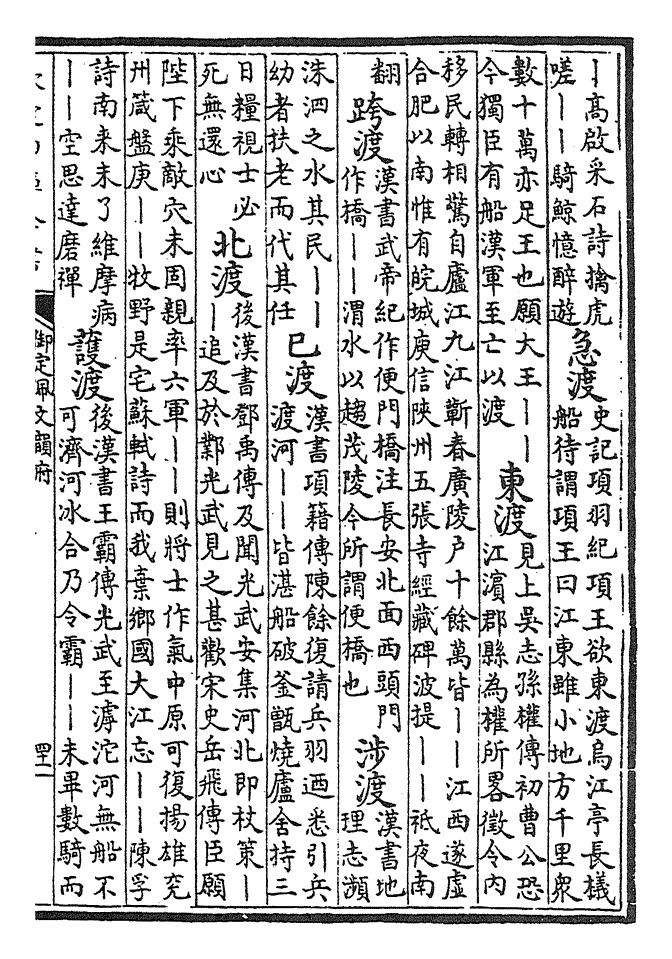 丨高啟采石詩擒虎
嗟丨丨騎鯨憶醉遊
急渡
史記項羽紀項王欲東渡烏江亭長檥
船待謂項王曰江東雖小地方千里衆
數十萬亦足王也願大王丨丨
今獨臣有船漢軍至亡以渡
東渡
見上吳志孫權傳初曹公恐
江濱郡縣為權所畧徵令內
移民轉相驚自廬江九江蘄春廣陵户十餘萬皆丨丨江西遂虛
合肥以南惟有皖城庾信陝州五張寺經藏碑波提丨丨丨祗夜南
翻
跨渡
漢書武帝紀作便門橋注長安北面西頭門
作橋丨丨渭水以趨茂陵今所謂便橋也
涉渡
漢書地
理志瀕
洙泗之水其民丨丨
幼者扶老而代其任
巳渡
漢書項籍傳陳餘復請兵羽迺悉引兵
渡河丨丨皆湛船破釜甑燒廬舍持三
日糧視士必
死無還心
北渡
後漢書鄧禹傳及聞光武安集河北即杖策丨
丨追及於鄴光武見之甚歡宋史岳飛傳臣願
陛下乘敵穴未固親率六軍丨丨則將士作氣中原可復揚雄兖
州箴盤庚丨丨牧野是宅蘇軾詩而我棄鄉國大江忘丨丨陳孚
詩南来未了維摩病
丨丨空思達磨禪
護渡
後漢書王霸傳光武至滹沱河無船不
可濟河冰合乃令霸丨丨未畢數騎而
御定佩文韻府